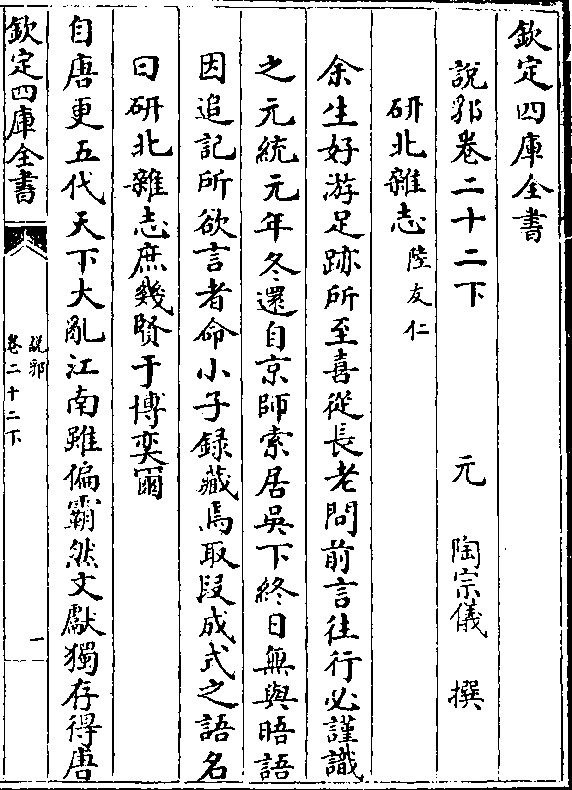 欽定四庫全書
說郛卷二十二下 元 陶宗儀 撰
研北雜志 陸友仁
余生好游足跡所至喜從長老問前言往行必謹識
之元統元年冬還自京師索居吳下終日無與晤語
因追記所欲言者命小子録藏焉取段成式之語名
曰研北雜志庶幾賢于博奕爾
自唐更五代天下大亂江南雖偏霸然文獻獨存得唐
欽定四庫全書
說郛
卷二十二下
一